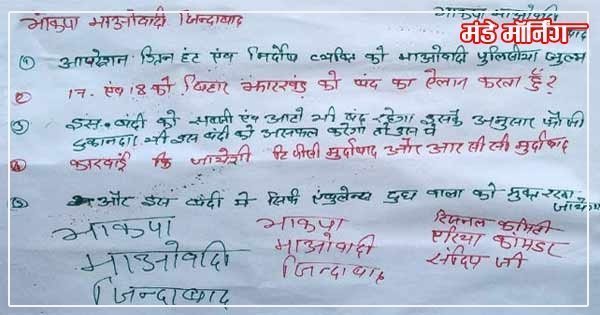 भाकपा माओवादी जिन्दाबाद
भाकपा माओवादी
मंडे मॉर्निंग
① आपरेशन ग्रिन हंट एंव निर्दोष व्यक्ति को माओवादी पुलिसीया जुल्म
② 17. एंव 18 को बिहार झारखण्ड को बंद का ऐलान करता हुँ?
③ इस बंदी को सवारी एंव आटो भी बंद रहेगा इसके अनुसार
दुकानदार भी इस बंदी को असफल करेगा तो उस पे
④ कारवाई कि जायेगी टि पीसी मुर्दाबाद और आर सी सी मुर्दाबाद
⑤ और इस बंदी मे सिर्फ एंबुलेन्स दुध वाला को मुक्त रखा
जायेगा
भाकपा
माओवादी
जिन्दाबाद
भाकपा
माओवादी
जिन्दाबाद
रिजनल कमिटी
एरिया कमांडर
संदिप जी